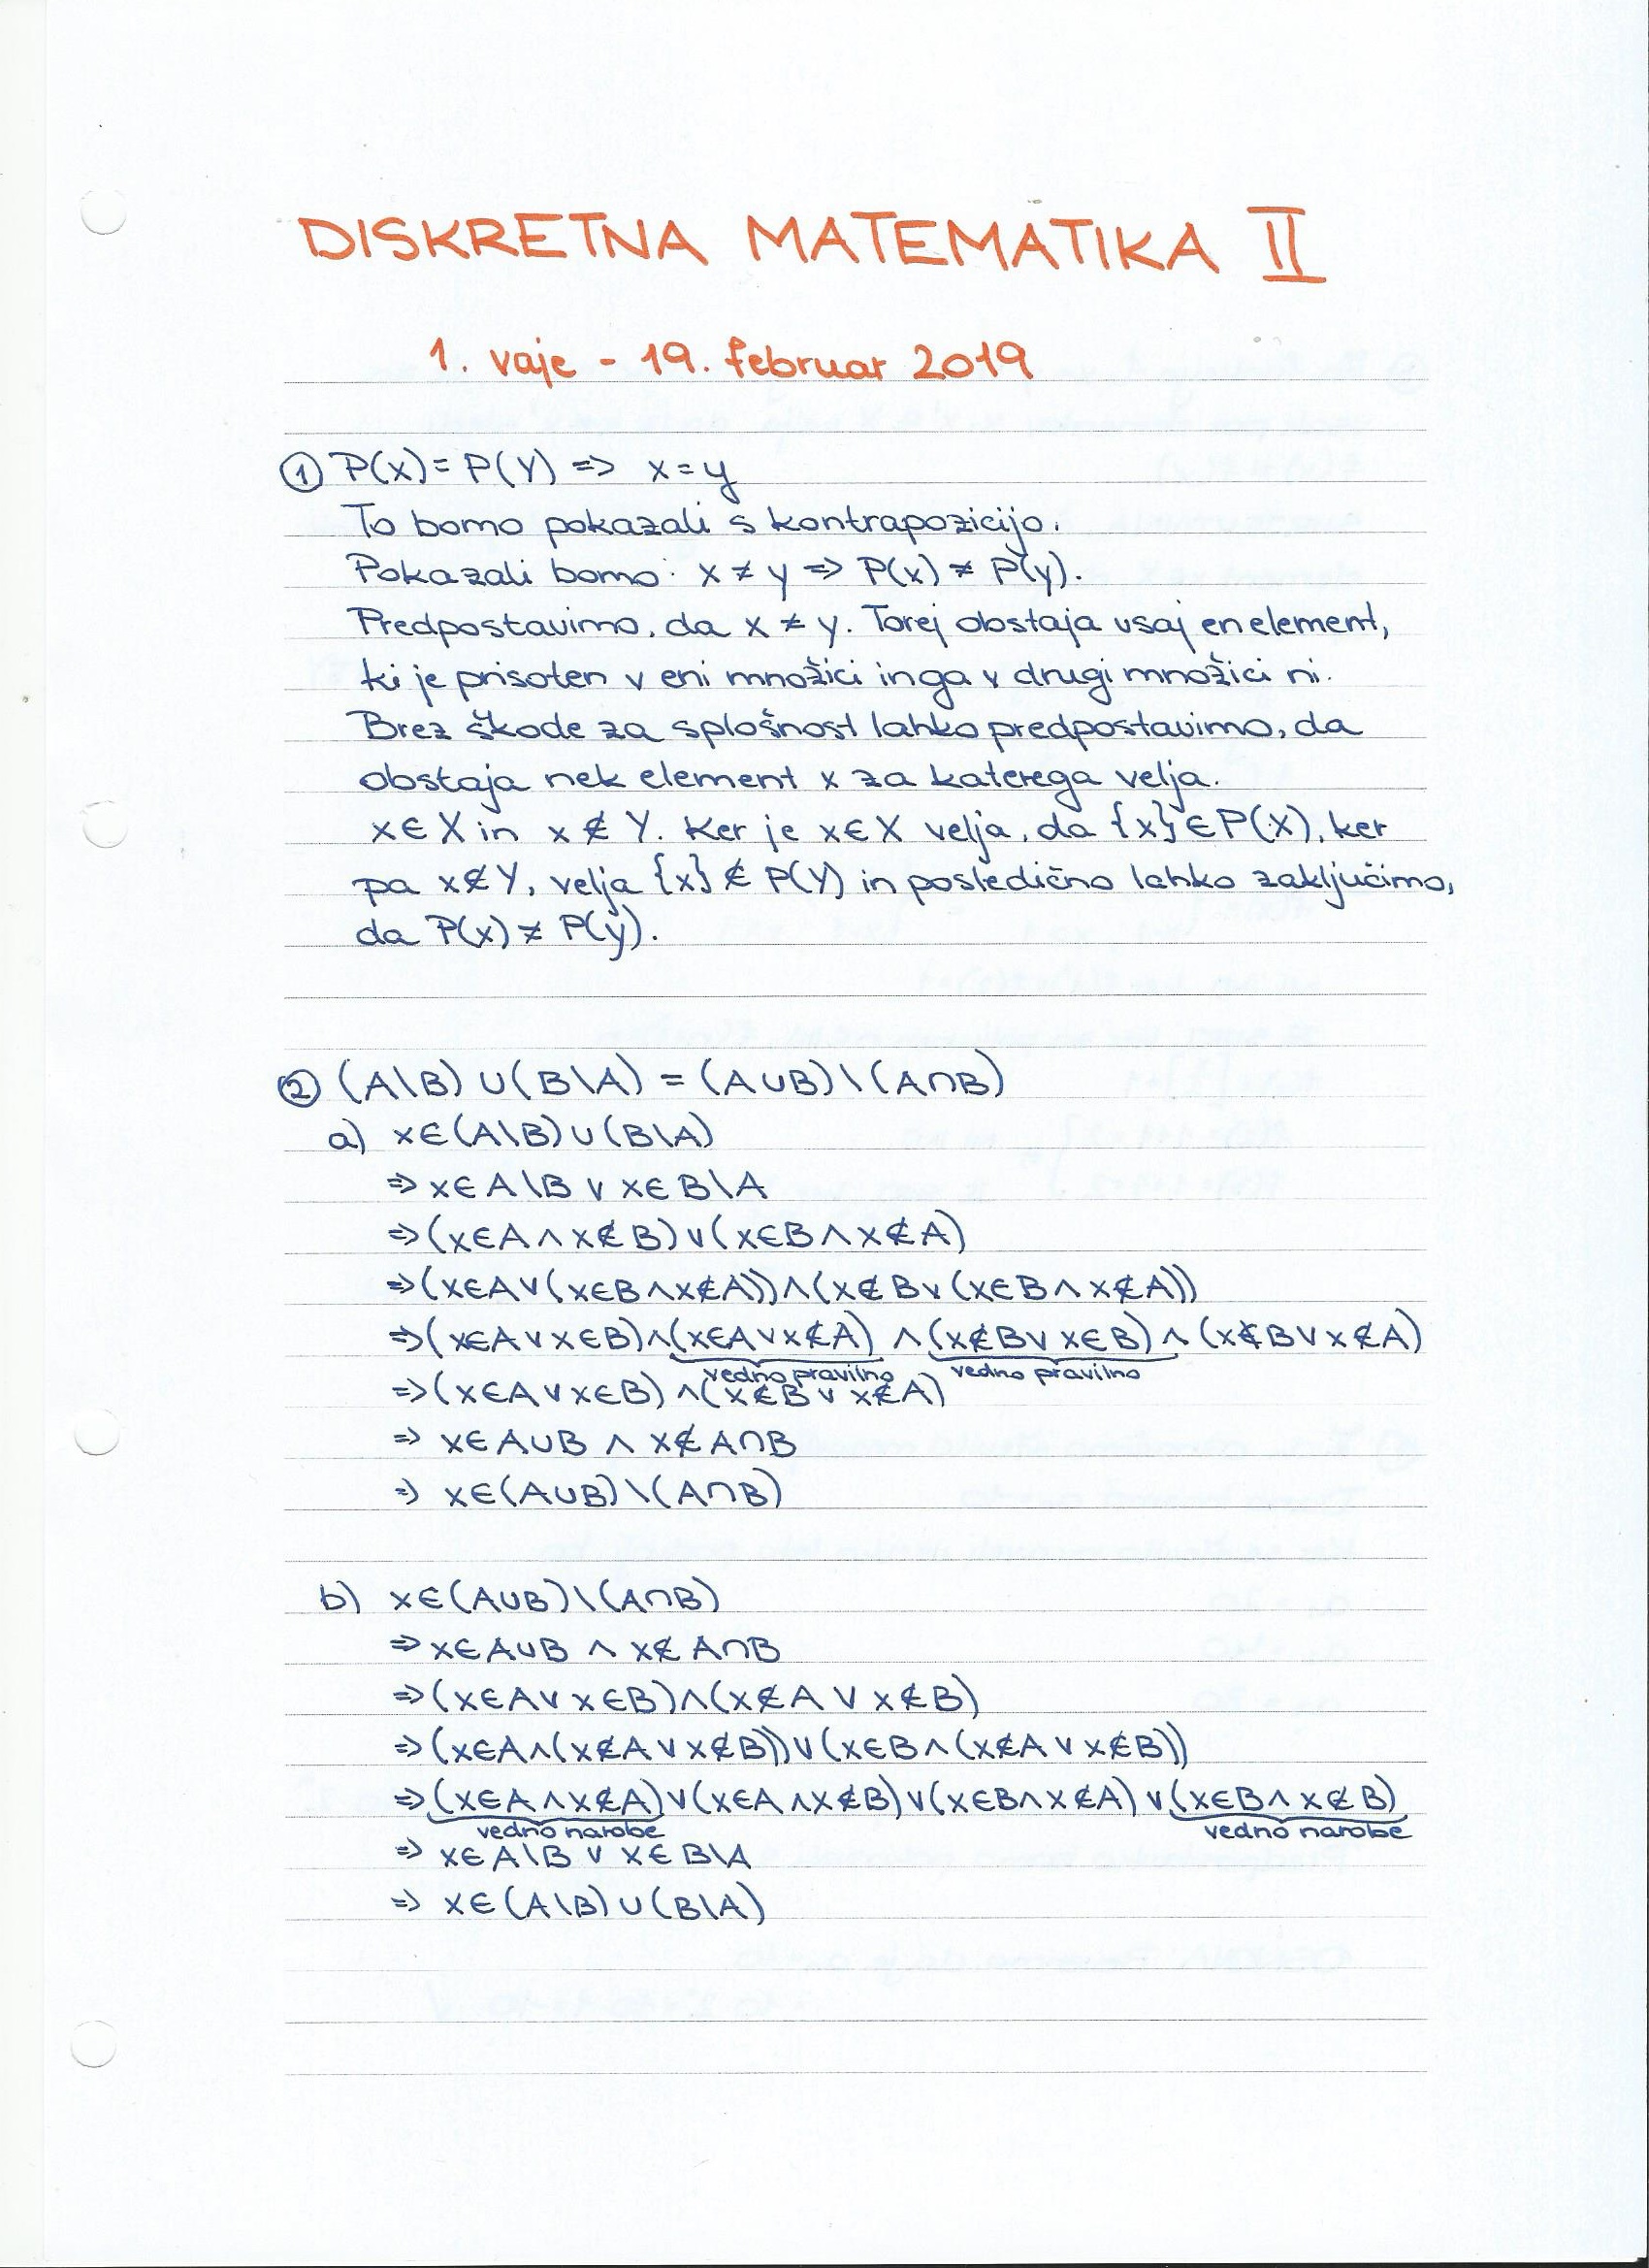 DISKRETNA MATEMATIKA II
1. vaje - 19. februar 2019
① P(X) = P(Y) => x = y
To bomo pokazali s kontrapozicijo.
Pokazali bomo: x ≠ y => P(x) ≠ P(y).
Predpostavimo, da x ≠ y. Torej obstaja vsaj en element,
ki je prisoten v eni množici in ga v drugi množici ni.
Brez škode za splošnost lahko predpostavimo, da
obstaja nek element x za katerega velja.
x∈X in x∉Y. Ker je x∈X velja, da {x}∈P(X), ker
pa x∉Y, velja {x}∉P(Y) in posledično lahko zaključimo,
da P(x) ≠ P(y).
② (A\B)∪(B\A) = (A∪B)\(A∩B)
a) x∈(A\B)∪(B\A)
=> x∈A\B ∨ x∈B\A
=> (x∈A ∧ x∉B)∨(x∈B ∧ x∉A)
=> (x∈A∨(x∈B∧x∉A))∧(x∉B∨(x∈B∧x∉A))
=> (x∈A∨x∈B)∧(x∈A∨x∉A)∧(x∉B∨x∈B)∧(x∉B∨x∉A)
vedno pravilno vedno pravilno
=> (x∈A∨x∈B)∧(x∉B∨x∉A)
=> x∈A∪B ∧ x∉A∩B
=> x∈(A∪B)\(A∩B)
b) x∈(A∪B)\(A∩B)
=> x∈A∪B ∧ x∉A∩B
=> (x∈A∨x∈B)∧(x∉A∨x∉B)
=> (x∈A∧(x∉A∨x∉B))∨(x∈B∧(x∉A∨x∉B))
=> (x∈A∧x∉A)∨(x∈A∧x∉B)∨(x∈B∧x∉A)∨(x∈B∧x∉B)
vedno narobe vedno narobe
=> x∈A\B ∨ x∈B\A
=> x∈(A\B)∪(B\A)